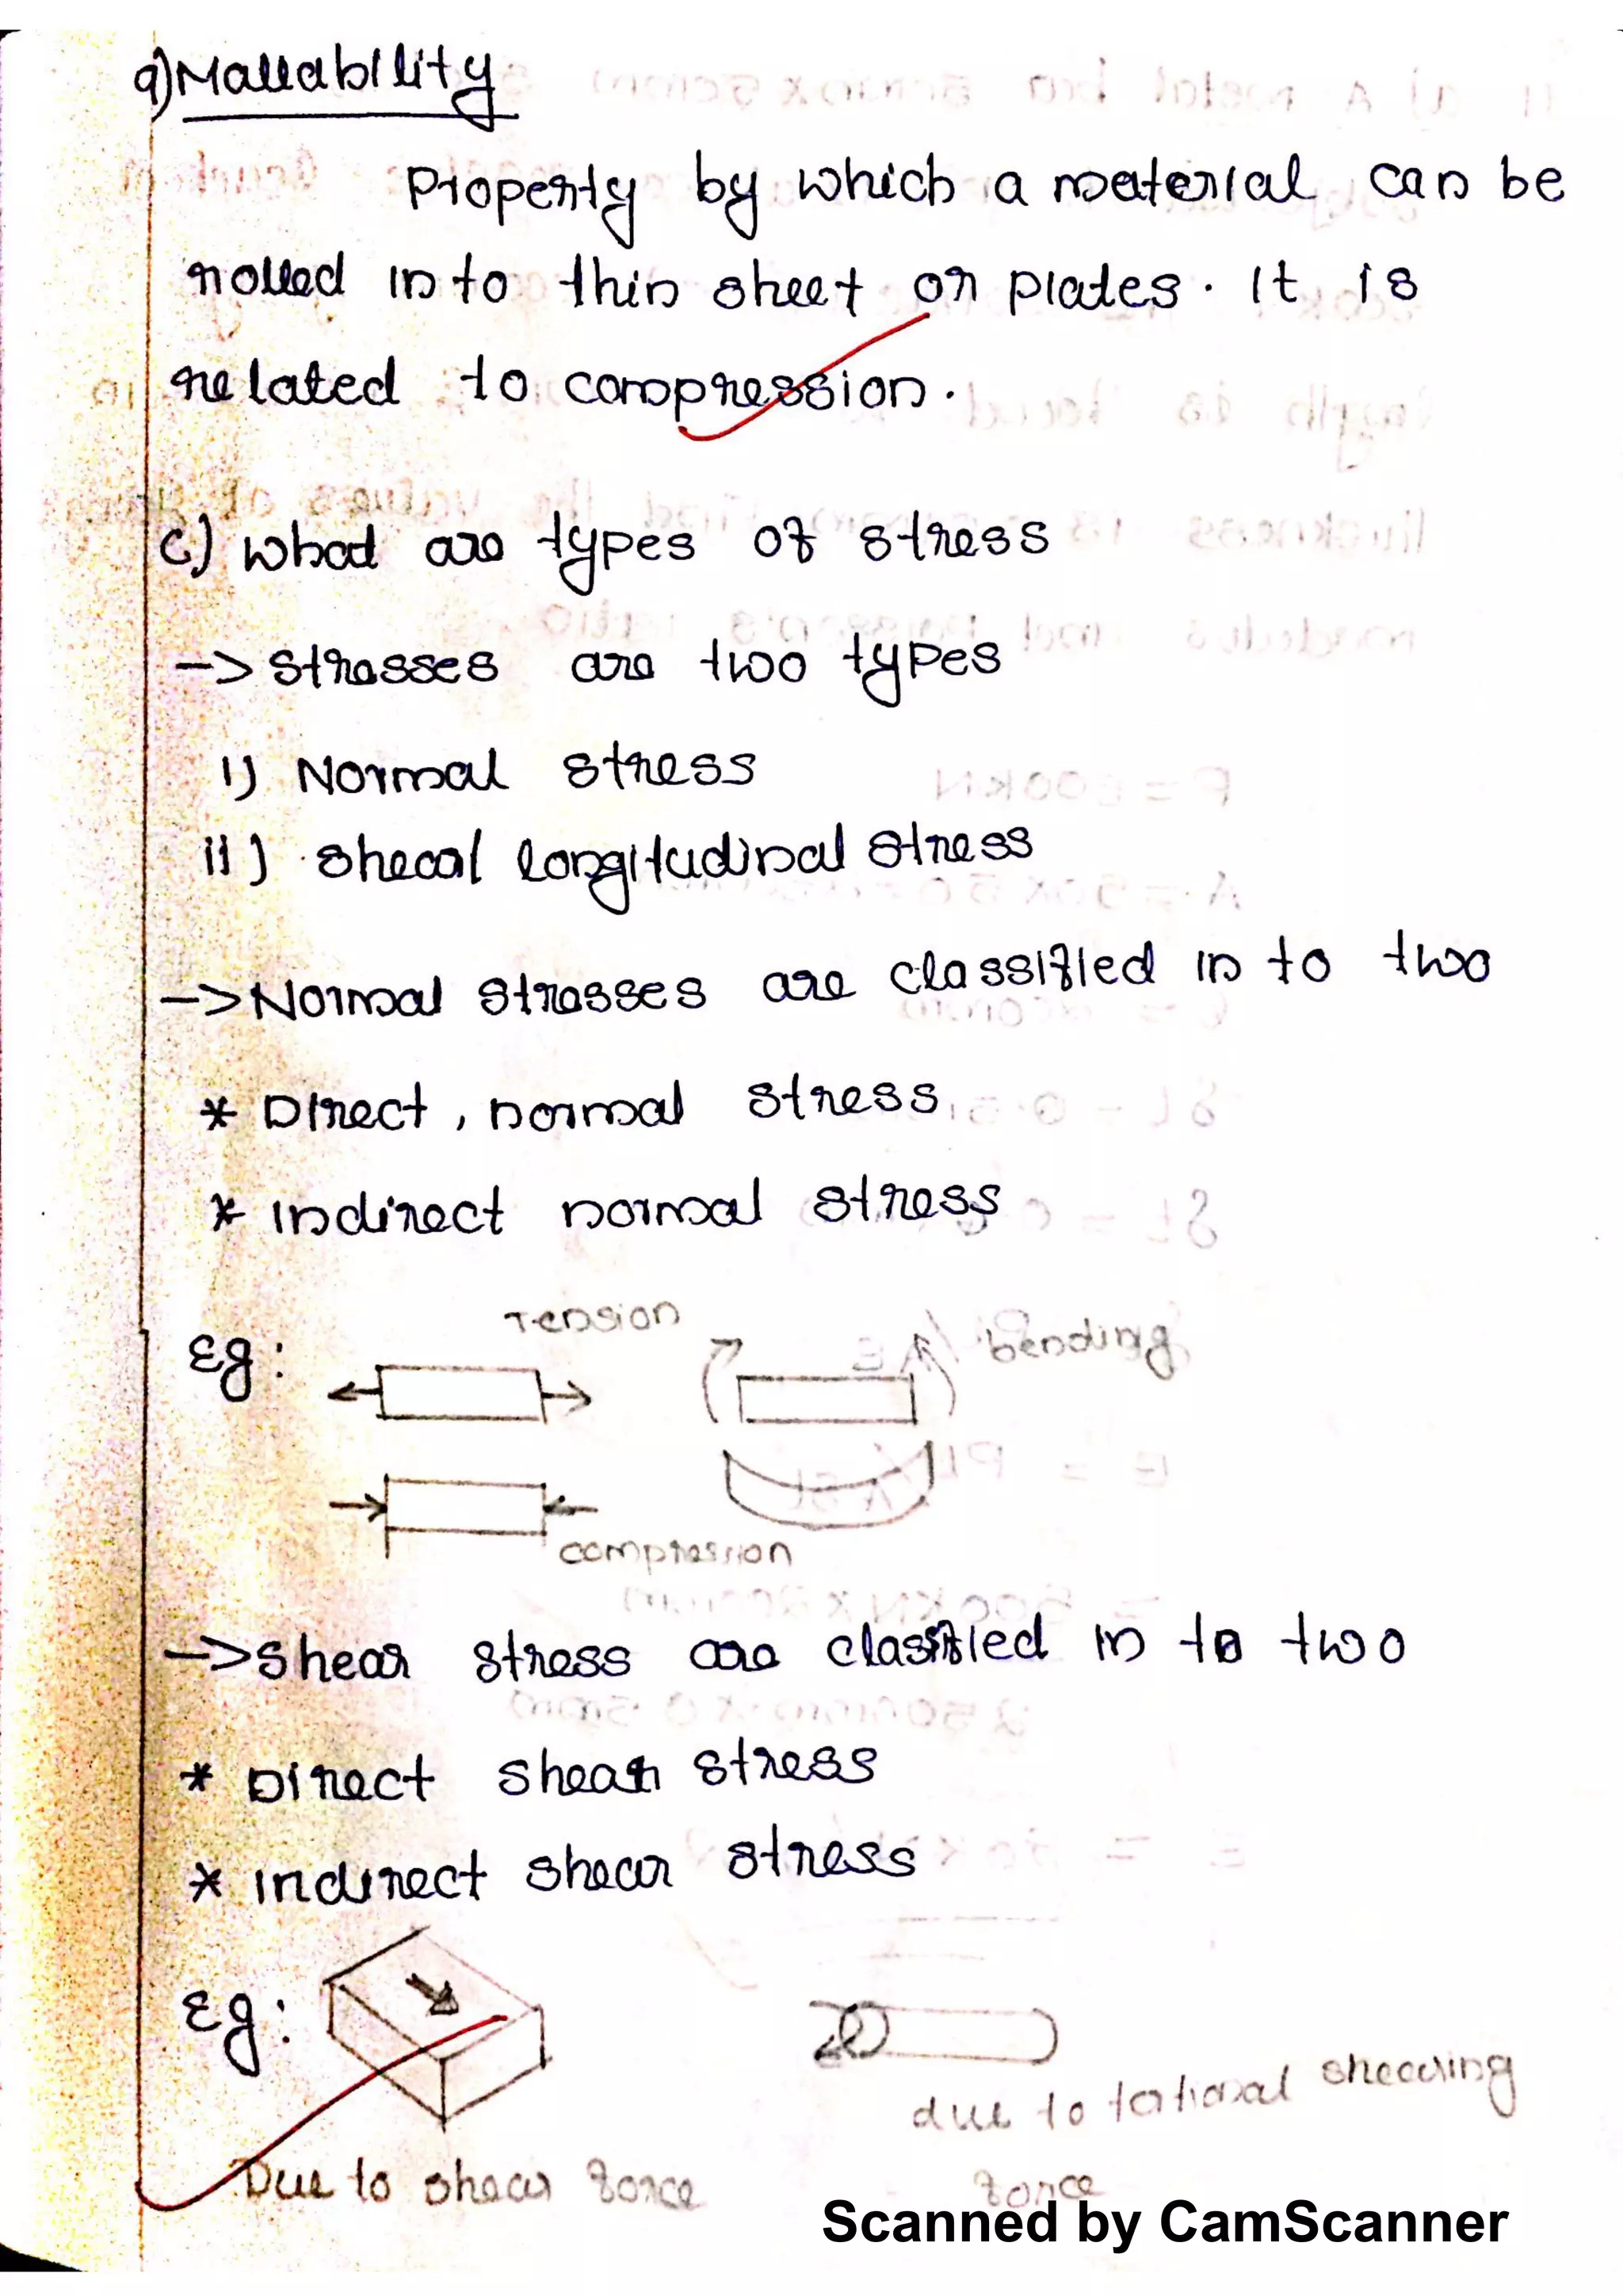 9) Mallability
Property by which a material can be
rolled in to thin sheet or plates. It is
related to compression.
c) what are types of stress
-> Stresses are two types
i) Normal stress
ii) shecal longitudinal stress
-> Normal stresses are classified in to two
* Direct, normal stress
* Indirect normal stress
Eg:
Tension
bending
compression
-> shear stress are classified in to two
* Direct shear stress
* Indirect shear stress
Eg:
due to shearing
Due to shear force
force
Scanned by CamScanner